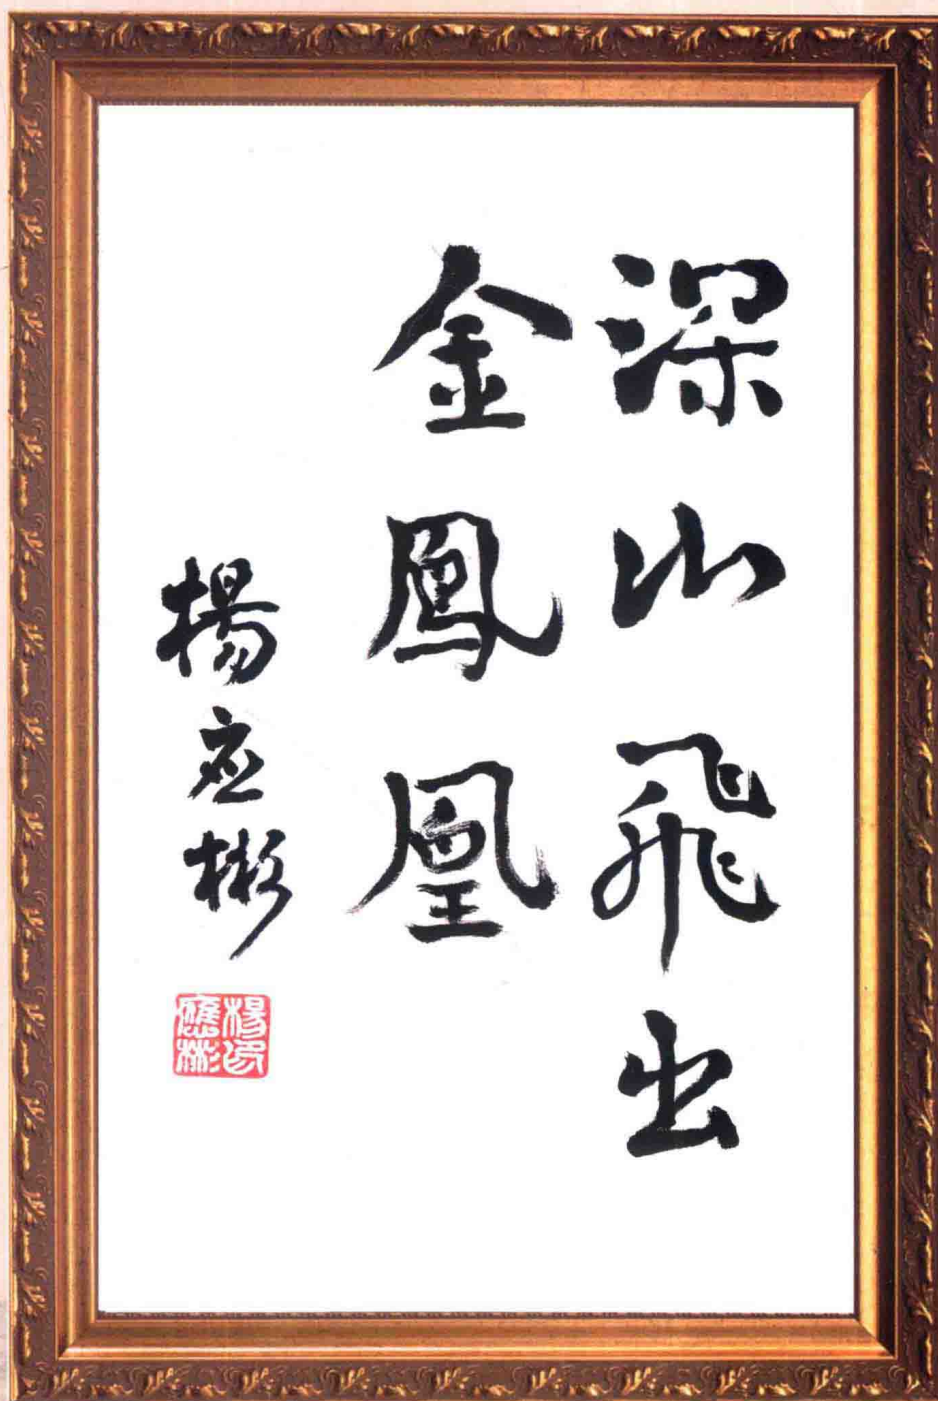 深山飛出
金鳳凰
楊应彬
楊印
應彬